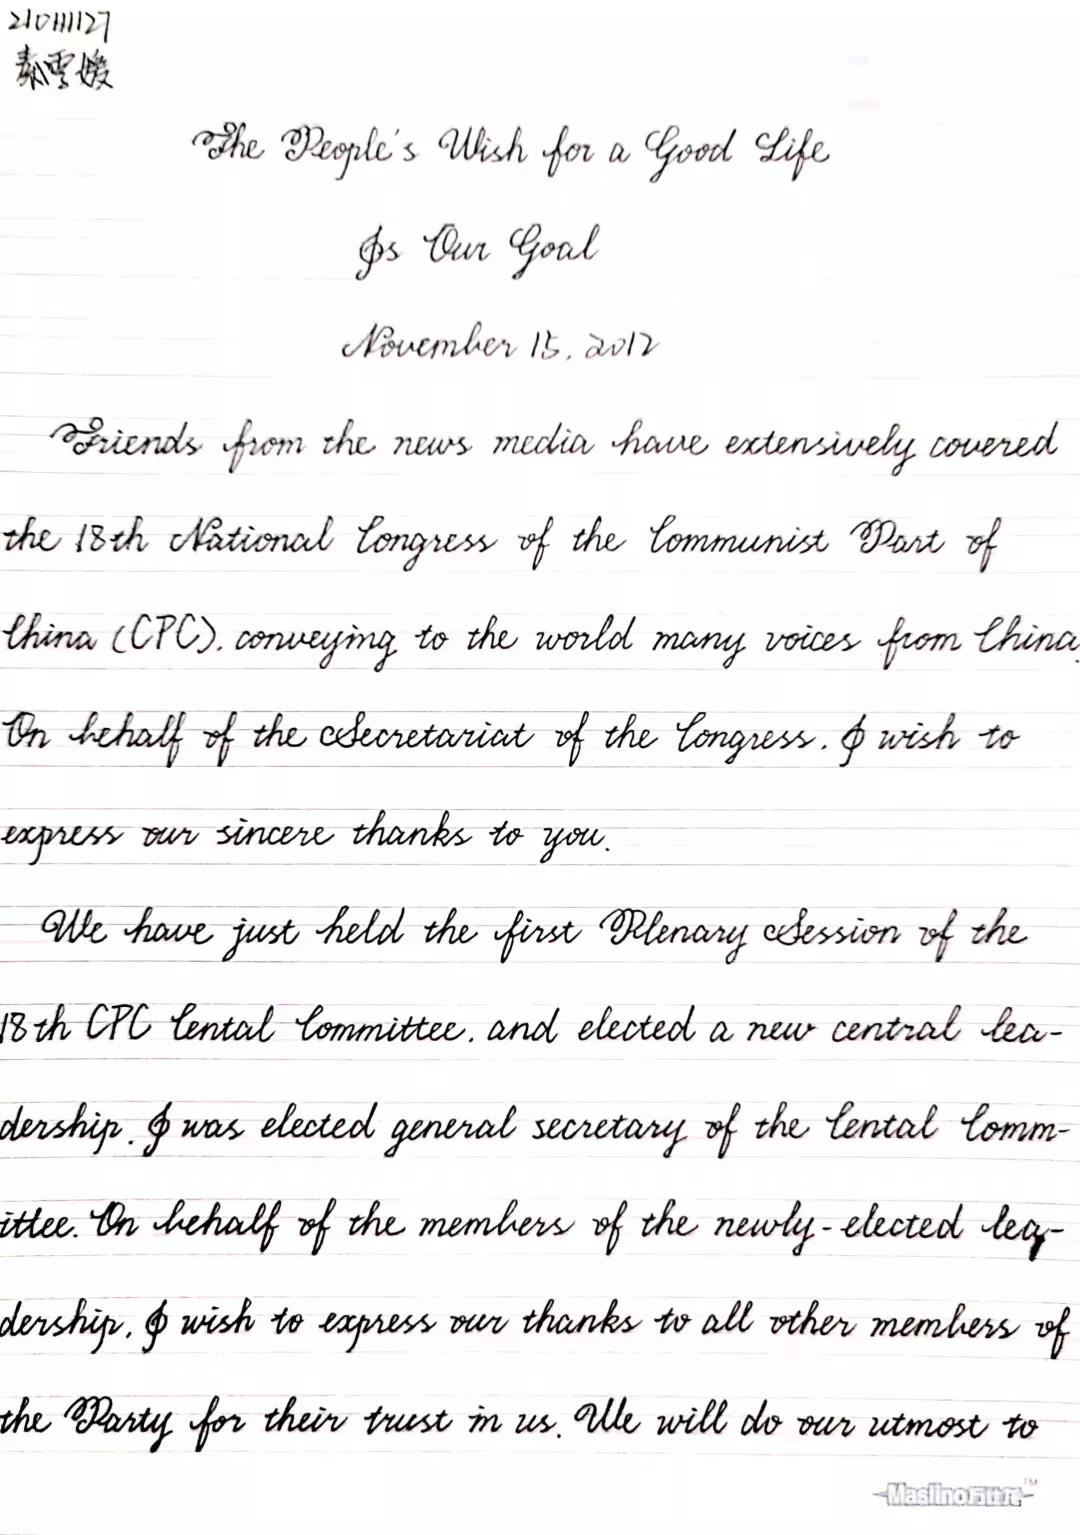 210111127
秦雪媛
The People's Wish for a Good Life
Is Our Goal
November 15, 2012
Friends from the news media have extensively covered
the 18th National Congress of the Communist Part of
China (CPC), conveying to the world many voices from China.
On behalf of the Secretariat of the Congress, I wish to
express our sincere thanks to you.
We have just held the first Plenary Session of the
18th CPC Cental Committee, and elected a new central lea-
dership. I was elected general secretary of the Cental Comm-
ittee. On behalf of the members of the newly-elected lea-
dership, I wish to express our thanks to all other members of
the Party for their trust in us. We will do our utmost to
Maslino
TM